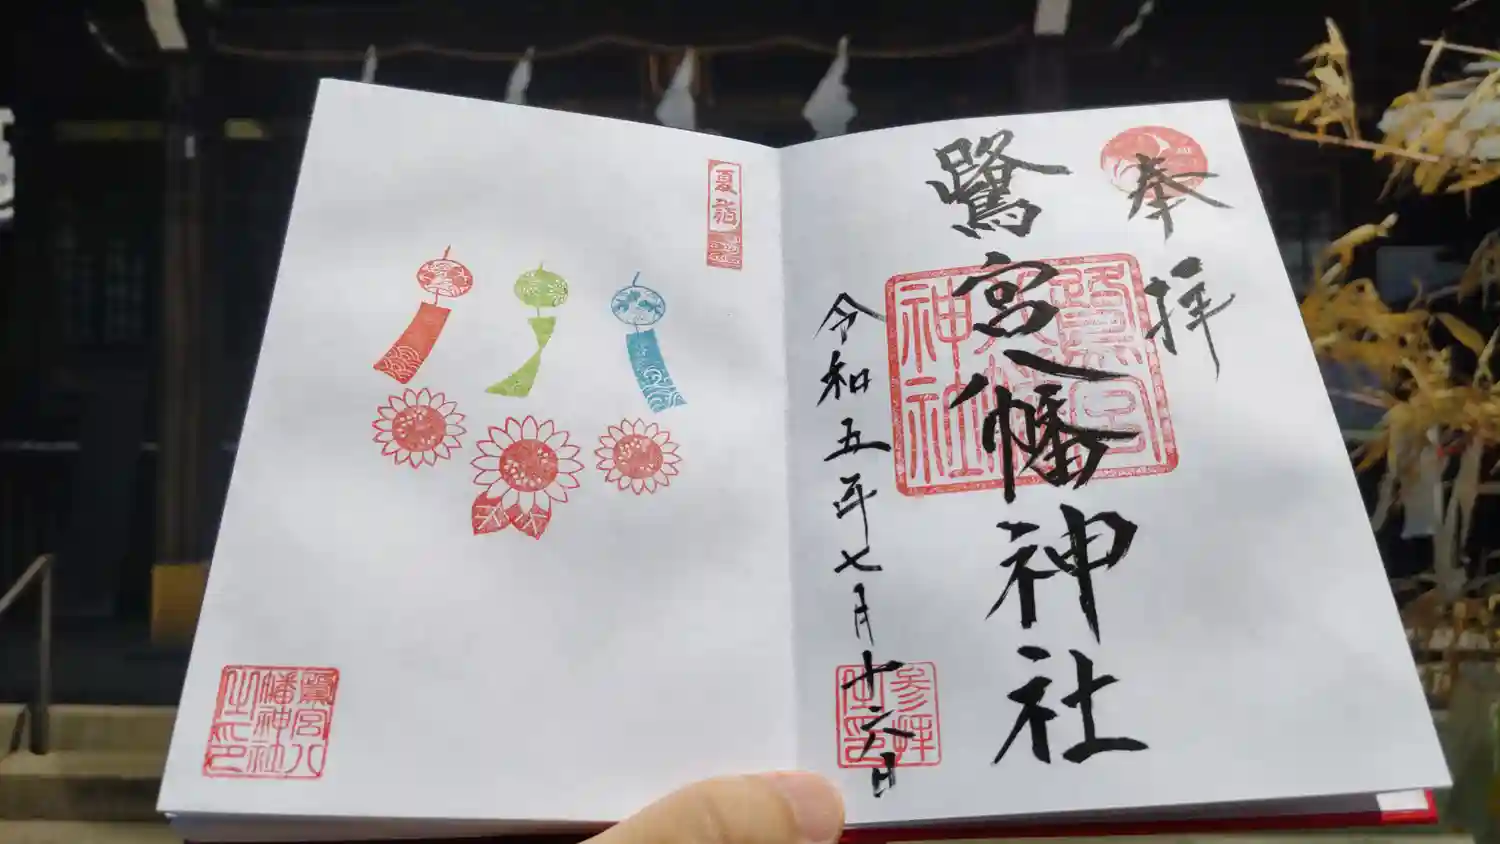 奉拝
鷺宮八幡神社
令和五年七月十六日
鷺宮八幡神社
参拝之印
夏詣
鷺宮八幡神社之印